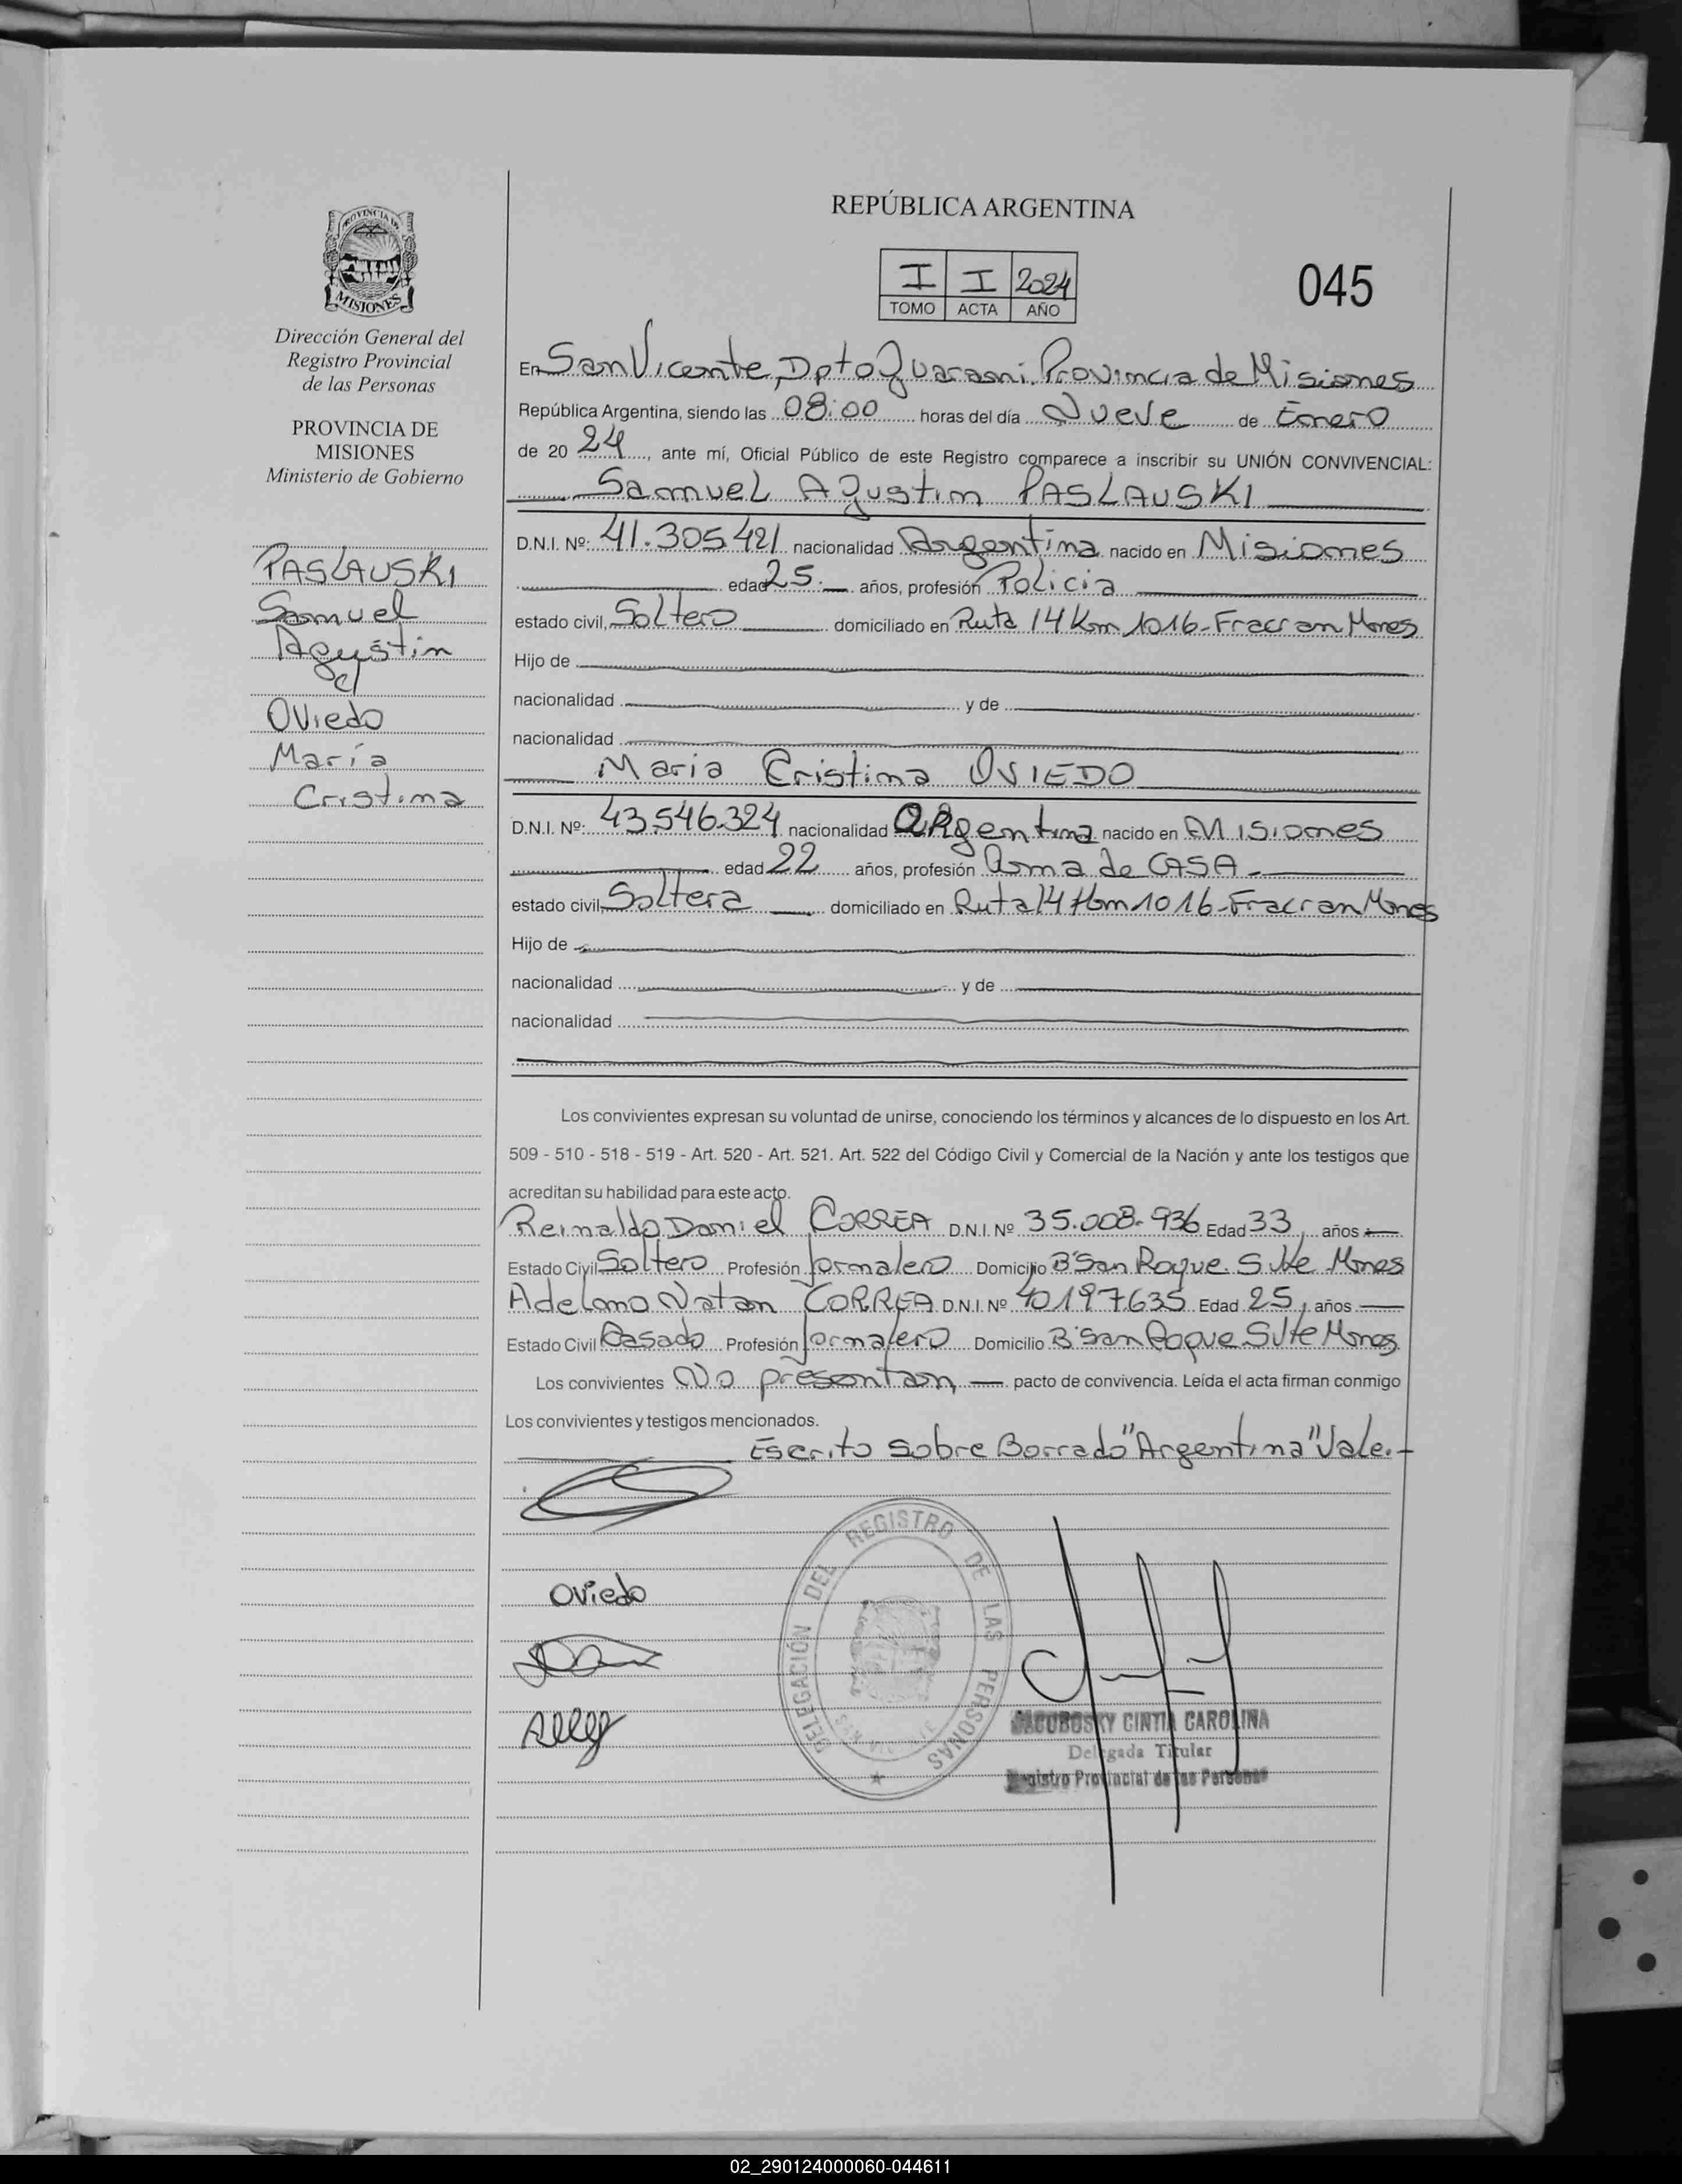 REPÚBLICA ARGENTINA
I I 2024
TOMO ACTA AÑO
045
PROVINCIA DE
MISIONES
Dirección General del
Registro Provincial
de las Personas
PROVINCIA DE
MISIONES
Ministerio de Gobierno
PASLAUSKI
Samuel
Agustin
c/
Oviedo
María
Cristina
En San Vicente, Dpto Guarani. Provincia de Misiones
República Argentina, siendo las 08:00 horas del día Nueve de Enero
de 20 24, ante mí, Oficial Público de este Registro comparece a inscribir su UNIÓN CONVIVENCIAL:
Samuel Agustin PASLAUSKI
D.N.I. Nº: 41.305.421 nacionalidad Argentina nacido en Misiones
edad 25. años, profesión Policia
estado civil, Soltero domiciliado en Ruta 14 Km 1016-Fracran Mnes
Hijo de
nacionalidad y de
nacionalidad
Maria Cristina OVIEDO
D.N.I. Nº: 43.546.324 nacionalidad Argentina nacido en Misiones
edad 22 años, profesión Ama de CASA
estado civil, Soltera domiciliado en Ruta 14 Km 1016-Fracran Mnes
Hijo de
nacionalidad y de
nacionalidad
Los convivientes expresan su voluntad de unirse, conociendo los términos y alcances de lo dispuesto en los Art.
509 - 510 - 518 - 519 - Art. 520 - Art. 521. Art. 522 del Código Civil y Comercial de la Nación y ante los testigos que
acreditan su habilidad para este acto.
Reinaldo Daniel CORREA D.N.I. Nº 35.008.936 Edad 33, años
Estado Civil Soltero Profesión Jornalero Domicilio Bº San Roque. S. Vte Mnes
Adelano Natan CORREA D.N.I. Nº 40197.635 Edad 25, años
Estado Civil Casado Profesión Jornalero Domicilio Bº San Roque S Vte Mnes
Los convivientes No presentan, pacto de convivencia. Leída el acta firman conmigo
Los convivientes y testigos mencionados.
Escrito sobre Borrado "Argentina" Vale.-
Oviedo
DELEGACIÓN DEL REGISTRO DE LAS PERSONAS
SAN VICENTE
JACUBOSKY CINTIA CAROLINA
Delegada Titular
Registro Provincial de las Personas
02_290124000060-044611